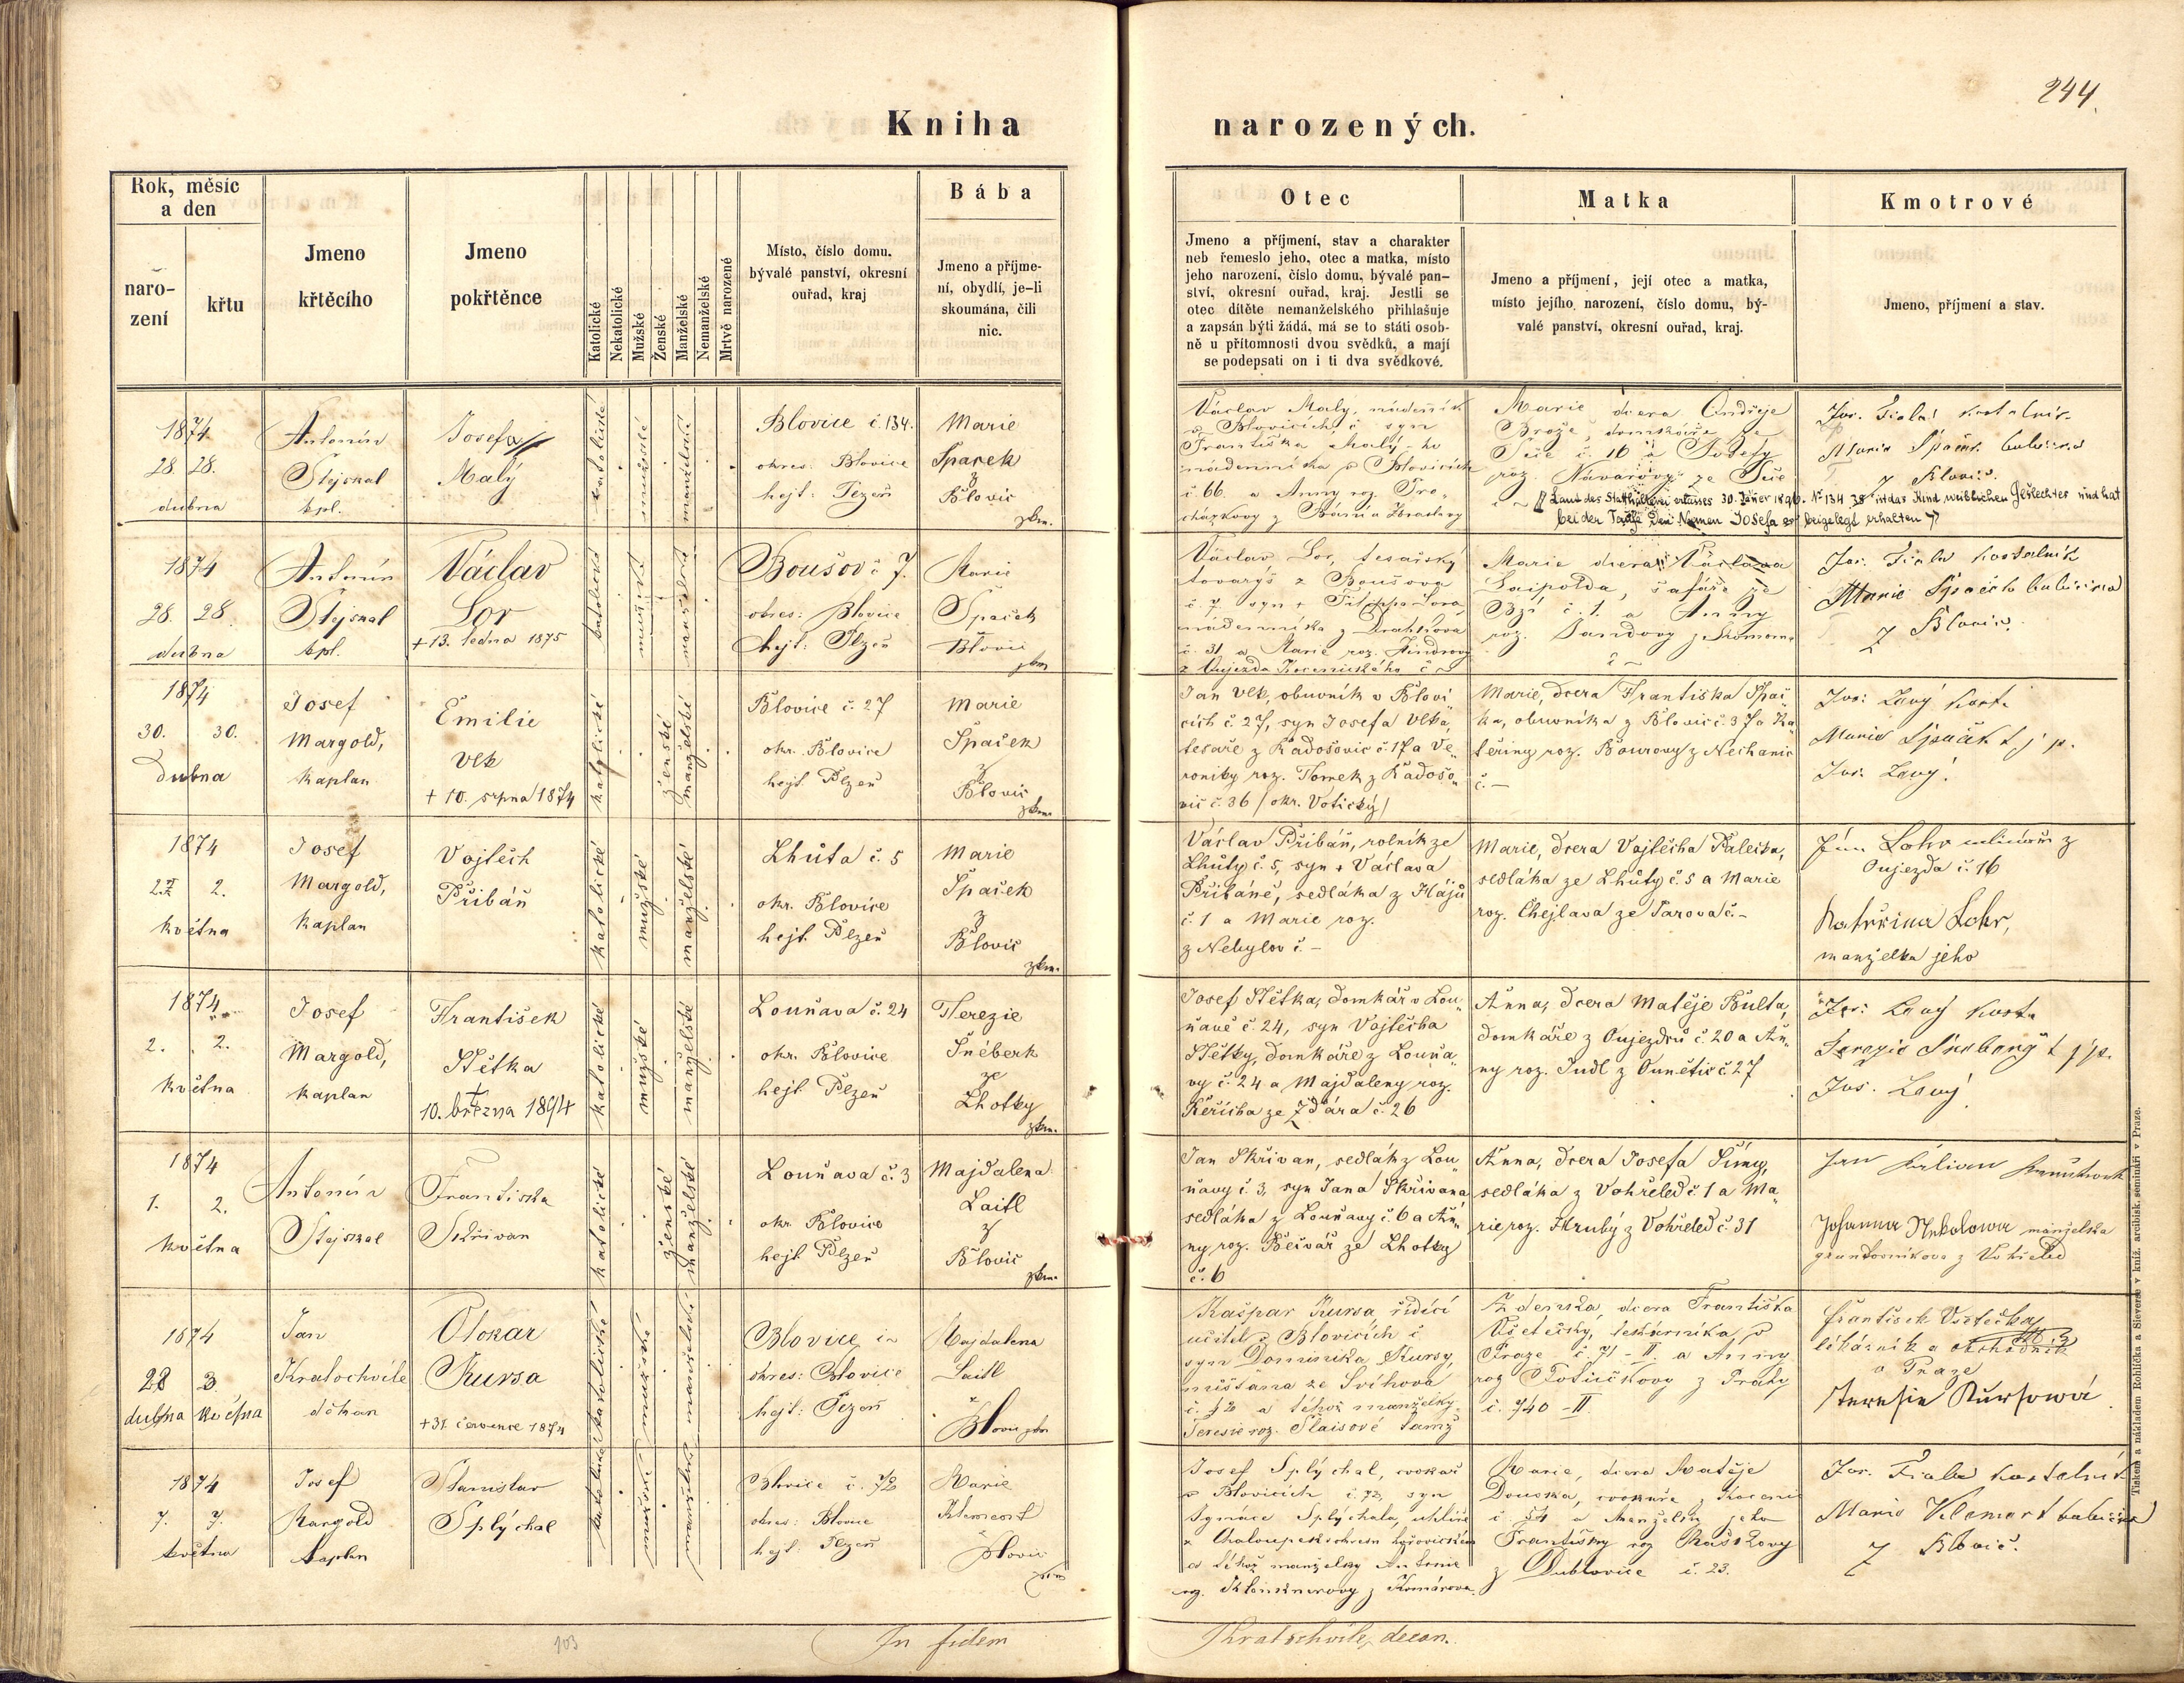 244.
Kniha narozených.
Rok, měsíc a den
narození
křtu
Jmeno křtěcího
Jmeno pokřtěnce
Katolické
Nekatolické
Mužské
Ženské
Manželské
Nemanželské
Mrtvě narozené
Místo, číslo domu, bývalé panství, okresní ouřad, kraj
Bába
Jmeno a příjme-
ní, obydlí, je-li
skoumána, čili
nic.
Otec
Jmeno a příjmení, stav a charakter
neb řemeslo jeho, otec a matka, místo
jeho narození, číslo domu, bývalé pan-
ství, okresní ouřad, kraj. Jestli se
otec dítěte nemanželského přihlašuje
a zapsán býti žádá, má se to státi osob-
ně u přítomnosti dvou svědků, a mají
se podepsati on i ti dva svědkové.
Matka
Jmeno a příjmení, její otec a matka,
místo jejího narození, číslo domu, bý-
valé panství, okresní ouřad, kraj.
Kmotrové
Jmeno, příjmení a stav.
1874
28. 28.
dubna
Antonín
Stejskal
kpl.
Josefa
Malý
katolické
mužské
manželské
Blovice č. 134.
okres: Blovice
hejt: Plzeň
Marie
Špaček
z
Blovic
zkm.
Václav Malý, nádenník
v Blovicích č syn
Františka Malý-ho
nádenníka v Blovicích
č 66. a Anny roz. Pro-
cházkovy
Marie dcera Ondřeje
Brože, domkáře ze
č. 16 a Josefy
roz. Navarovy ze
Jos. Fiala kostelník
Marie Špaček babička
z Blovic.
Laut des Statthalterei erlasses 30. Jäner 1896. No 134 38 ist das Kind weiblichen Geschlechtes und hat
bei der Taufe den Namen Josefa beigelegt erhalten
1874
28. 28.
dubna
Antonín
Stejskal
kpl.
Václav
Lor
+ 13. ledna 1875
katolické
mužské
manželské
Boušov č 7.
okres: Blovice
hejt: Plzeň
Marie
Špaček
Blovic
zkm
Václav Lor, tesařský
tovaryš z Boušova
č. 7 syn + Filippa Lora
nádenníka z Drahkova
č. 31 a Marie roz. Jindrovy
z Oujezda
Marie dcera Václava
Laipolda, šafáře ze
Bzí č. 1. a Anny
roz. Jandovy z
Jos. Fiala kostelník
Marie Špaček babička
z Blovic.
1874
30. 30.
Dubna
Josef
Margold,
kaplan
Emilie
Vlk
+ 10. srpna 1874
katolické
ženské
manželské
Blovice č. 27
okr. Blovice
hejt. Plzeň
Marie
Špaček
z
Blovic
zkm.
Jan Vlk, obuvník v Blovi-
cích č 27, syn Josefa Vlka,
tesaře z Radošovic č. 17 a Ve-
roniky roz. Tomek z Radošo-
vic č. 36 /okr. Votický/
Marie, dcera Františka Špač-
ka, obuvníka z Blovic č. 37 a Ka-
teřiny roz. Bourovy z Nechanic
č. —
Jos: Lavý kost.
Marie Špaček t. j. p.
Jos. Lavý.
1874
2. 2.
května
Josef
Margold,
kaplan
Vojtěch
Přibáň
katolické
mužské
manželské
Lhůta č. 5
okr. Blovice
hejt. Plzeň
Marie
Špaček
z
Blovic
zkm.
Václav Přibáň, rolník ze
Lhůty č. 5, syn + Václava
Přibáně, sedláka z Hájů
č. 1 a Marie roz.
z Nebylov č. —
Marie, dcera Vojtěcha Palečka,
sedláka ze Lhůty č. 5 a Marie
roz. Chejlava ze Žarova č. —
Lohr mlinář z
Oujezda č. 16
Kateřina Lohr,
manželka jeho
1874
2. 2.
května
Josef
Margold,
kaplan
František
Štětka
+
10. března 1894
katolické
mužské
manželské
Louňava č. 24
okr. Blovice
hejt. Plzeň
Terezie
Šnéberk
ze
Lhotky
zkm.
Josef Štětka, domkář v Lou-
ňavě č. 24, syn Vojtěcha
Štětky, domkáře z Louňa-
vy č. 24 a Majdaleny roz.
Řeřicha ze Ždára č. 26
Anna, dcera Matěje Bulta,
domkáře z Oujezdců č. 20 a An-
ny roz. Judl z Ounětic č. 27
Jos: Lavý kost.
Terezie Šneberg t. j. p.
Jos. Lavý
1874
1. 2.
května
Antonín
Stejskal
Františka
Skřivan
katolické
ženské
manželské
Louňava č. 3
okr. Blovice
hejt. Plzeň
Majdalena
Laitl
z
Blovic
zkm.
Jan Skřivan, sedlák z Lou-
ňavy č. 3, syn Jana Skřivana
sedláka z Louňavy č. 6 a An-
ny roz. Bečvář ze Lhotky
č. 6
Anna, dcera Josefa Šímy,
sedláka z Vohřeled č. 1 a Ma-
rie roz. Hrubý z Vohřeled č. 31
Johanna manželka
gruntovníkova z Vohřeled
1874
28 3.
dubna května
Jan
Kratochvíle
děkan
Otokar
Kursa
+ 31. července 1874
katolické
mužské
manželské
Blovice č.
okres: Blovice
hejt: Plzeň
Majdalena
Laitl
z
Blovic zkm
Kašpar Kursa, řídící
učitel v Blovicích č
syn Dominika Kursy,
měšťana ze Švihova
č. 72 a téhož manželky
Teresie roz. Plaisové tamž
Zdenka, dcera Františka
Všetečky, lékárníka v
Praze č. 71 - II. a Anny
roz. z Prahy
č. 740 - II.
František Všetečka,
lékárník
v Praze
Teresie Kursowá
1874
7. 7.
května
Josef
Margold
kaplan
Stanislav
Splýchal
katolické
mužské
manželské
Blovice č. 72
okres: Blovice
hejt: Plzeň
Marie
Klement
Blovic
zkm
Josef Splýchal, cvokař
v Blovicích č. 72, syn
Ignáce Splýchala, uhlíře
z Chaloupek okresu hořovického
a téhož manželky Antonie
roz. z Komárova.
Marie, dcera Matěje
Douska, cvokaře z
č 54 a manželky jeho
Františky roz Raškovy
z Dublovice č. 23.
Jos. Fiala kostelník
Marie Klement babička
z Blovic.
103
In fidem Kratochvíle, decan.
Tiskem a nákladem Rohlíčka a Sieverse v kníž. arcibisk. semináři v Praze.